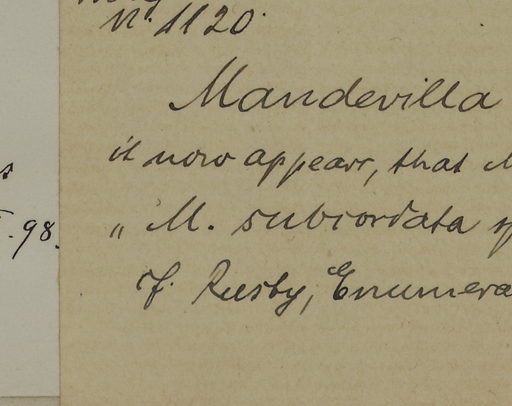 n. 1120.
Mandevilla
it now appears, that M
„ M. subcordata sp
f. Rusby, Enumera
98.